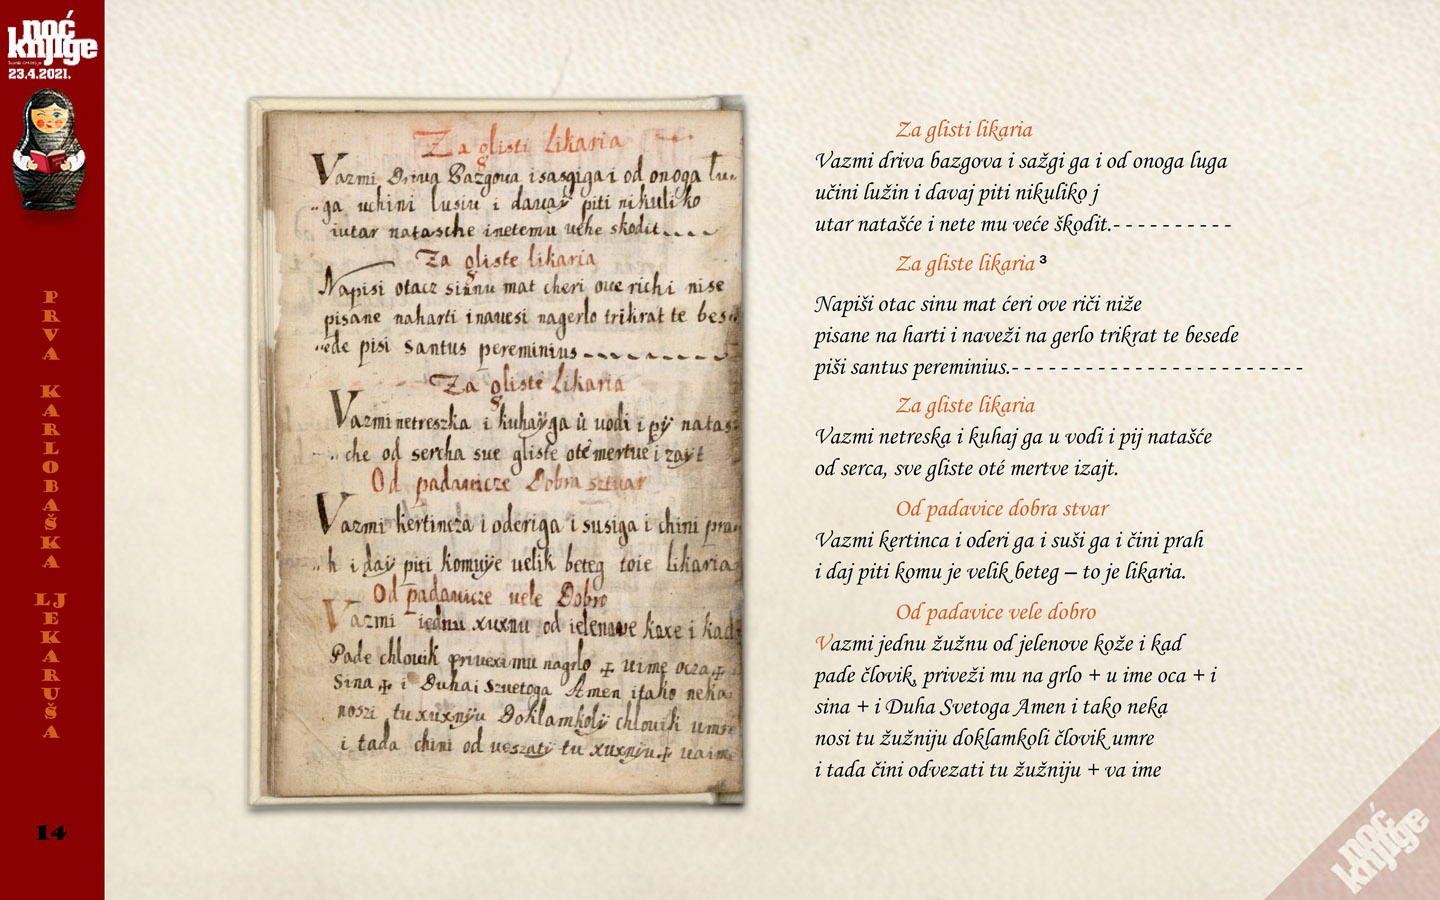 noć
knjige
23.4.2021.
PRVA KARLOBAŠKA LJEKARUŠA
14
Za glisti likaria
Vazmi Driva Bazgova i sasgiga i od onoga lu..
..ga uchini lusin i davaÿ piti nikuliko
iutar natasche inetemu vehe skodit....
Za gliste likaria
Napisi otacz sinnu mat cheri ove richi nise
pisane naharti inavesi nagerlo trikrat te bes..
..ede pisi santus pereminius
Za gliste likaria
Vazmi netreszka i kuhaÿga ù vodi i pÿ natas
.. che od sercha sve gliste oté mertve i zaÿt
Od padavicze Dobra sztvar
Vazmi kertincza i oderiga i susiga i chini pra
..h i daÿ piti komuÿe velik beteg toie likaria
Od padavicze vele Dobro
Vazmi iednu xuxnu od ielenove koxe i kad
Pade chlovik privexi mu nagrlo + uime ocza +
Sina + i Duhai Szvetoga Amen itako neka
noszi tu xuxnÿu Doklamkolÿ chlovik umre
i tada chini od veszati tu xuxnÿu + vaime
Za glisti likaria
Vazmi driva bazgova i sažgi ga i od onoga luga
učini lužin i davaj piti nikuliko j
utar natašće i nete mu veće škodit.- - - - - - - - - -
Za gliste likaria ³
Napiši otac sinu mat ćeri ove riči niže
pisane na harti i naveži na gerlo trikrat te besede
piši santus pereminius.- - - - - - - - - - - - - - - - - - - - - - - -
Za gliste likaria
Vazmi netreska i kuhaj ga u vodi i pij natašće
od serca, sve gliste oté mertve izajt.
Od padavice dobra stvar
Vazmi kertinca i oderi ga i suši ga i čini prah
i daj piti komu je velik beteg – to je likaria.
Od padavice vele dobro
Vazmi jednu žužnu od jelenove kože i kad
pade človik, priveži mu na grlo + u ime oca + i
sina + i Duha Svetoga Amen i tako neka
nosi tu žužniju doklamkoli človik umre
i tada čini odvezati tu žužniju + va ime
noć
knjige